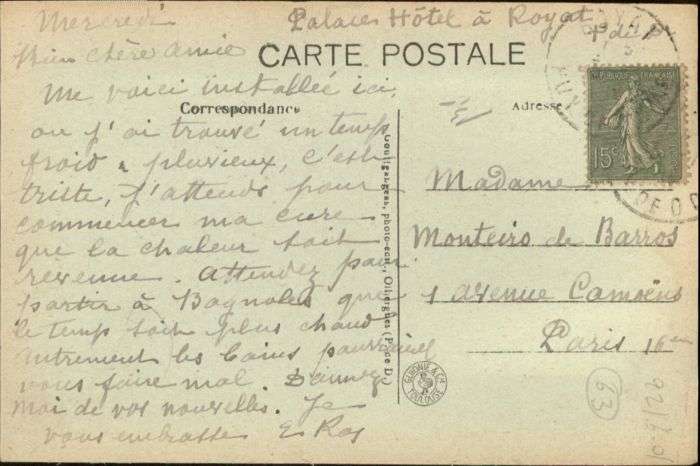 Mercredi
Palace Hôtel à Royat
P. de D.
Bien chère Amie
CARTE POSTALE
Me voici installée ici,
Correspondance
Adresse
où j'ai trouvé un temps
froid & pluvieux, c'est
triste, j'attends pour
commencer ma cure
que la chaleur soit
revenue. Attendez pour
partir à Bagnoles que
le temps soit plus chaud
autrement les bains pourraient
vous faire mal. Donnez
moi de vos nouvelles. Je
vous embrasse E Ros
Madame
Monteiro de Barros
1 avenue Camoëns
Paris 16em
REPUBLIQUE FRANÇAISE
15c
photo-édit., Olliergues (P.-de-D.)
GUIONIE & Cie
TOULOUSE
63